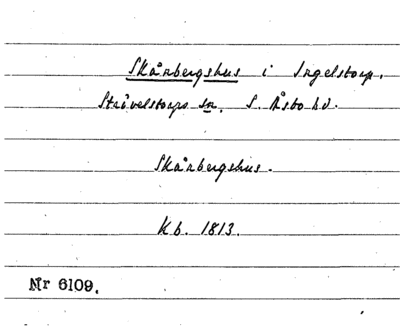 Skårbergshus i Ingelstorp.
Strövelstorps sn. S. Åsbo hd.
Skårbergshus.
Kb. 1813.
Nr 6109.